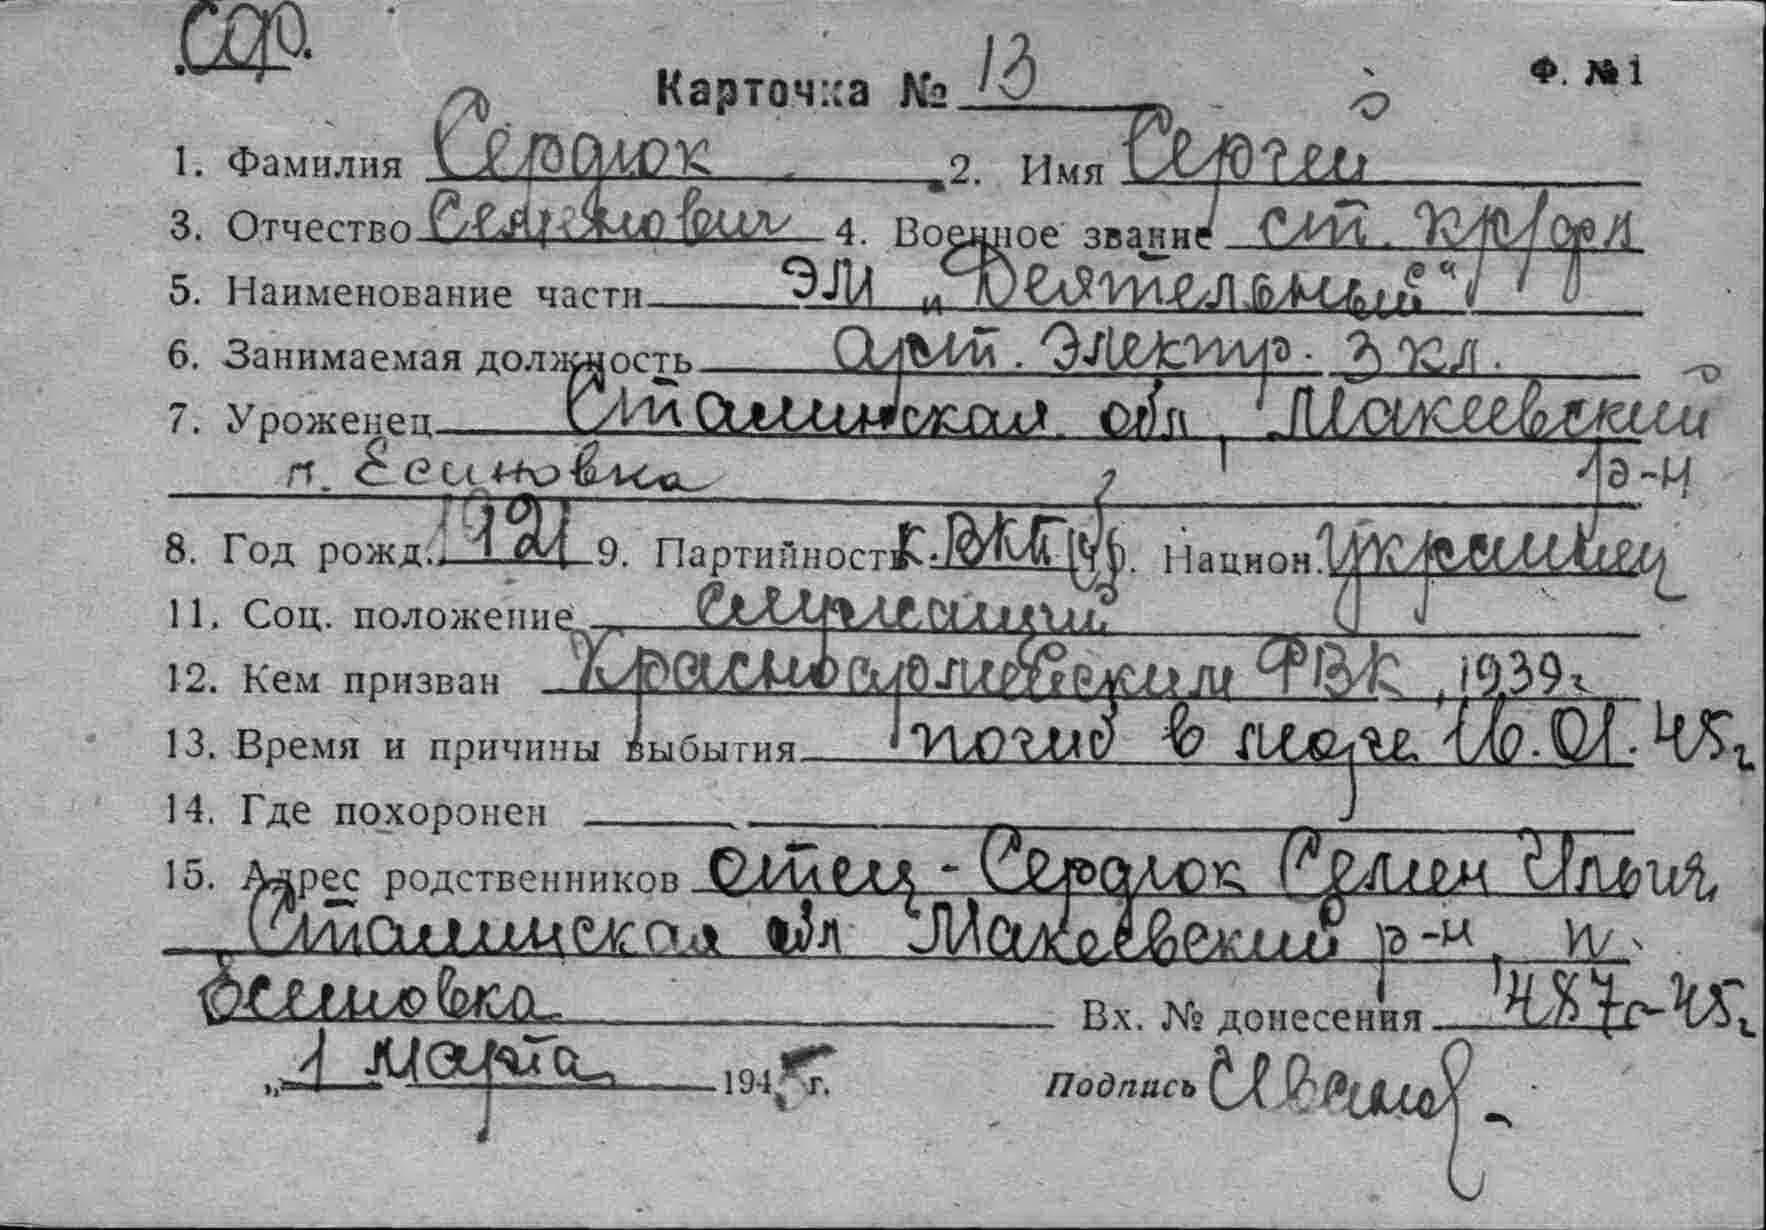 СФ.
Карточка № 13
Ф. № 1
1. Фамилия Сердюк 2. Имя Сергей
3. Отчество Семенович 4. Военное звание ст. кр/фл
5. Наименование части ЭМ „Деятельный"
6. Занимаемая должность арт. электр. 3 кл.
7. Уроженец Сталинская обл, Макеевский
п. Есиновка р-н
8. Год рожд. 1921 9. Партийность к. ВКП(б). Национ. украинец
11. Соц. положение служащий
12. Кем призван Красноармейским ФВК, 1939г
13. Время и причины выбытия погиб в море 16.01.45г
14. Где похоронен
15. Адрес родственников отец - Сердюк Семен Ильич,
Сталинская обл Макеевский р-н, п.
Есиновка Вх. № донесения 487с-45г
„1 марта 1945г. Подпись Иванов